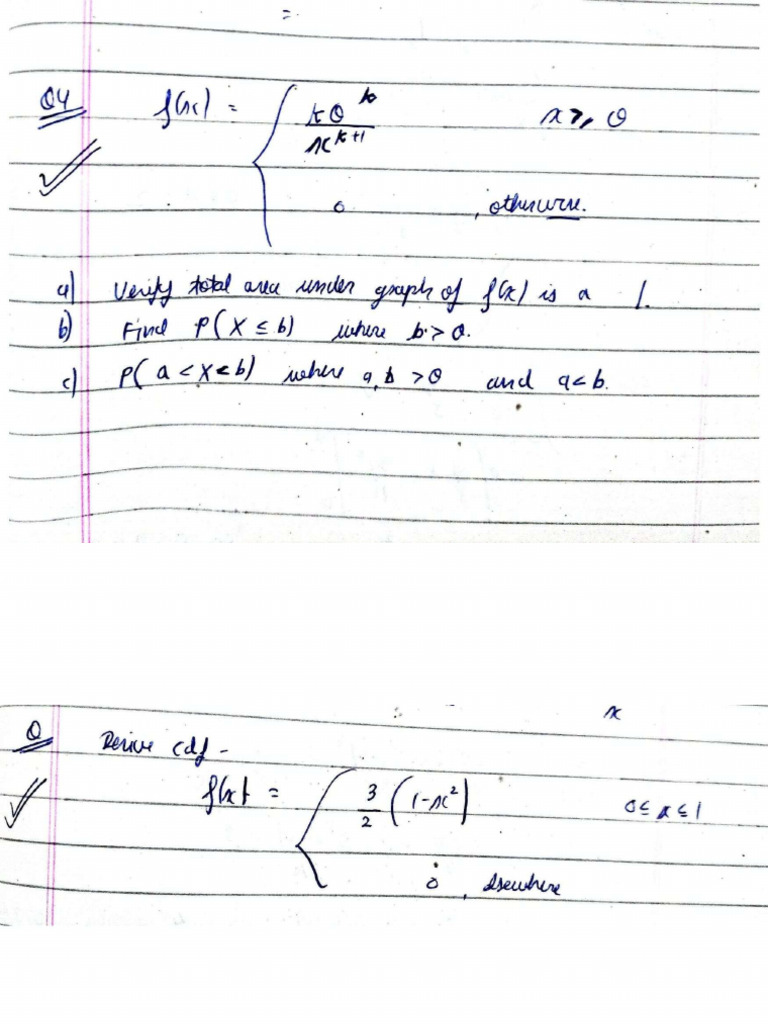 =
Q4 f(x) = { kθ^k / x^(k+1) x ≥ θ
0 , otherwise.
a) Verify total area under graph of f(x) is a 1.
b) Find P(X ≤ b) where b > θ.
c) P(a < X < b) where a, b > θ and a < b.
x
Q Derive cdf -
f(x) = { 3/2 (1-x²) 0 ≤ x ≤ 1
0 , elsewhere